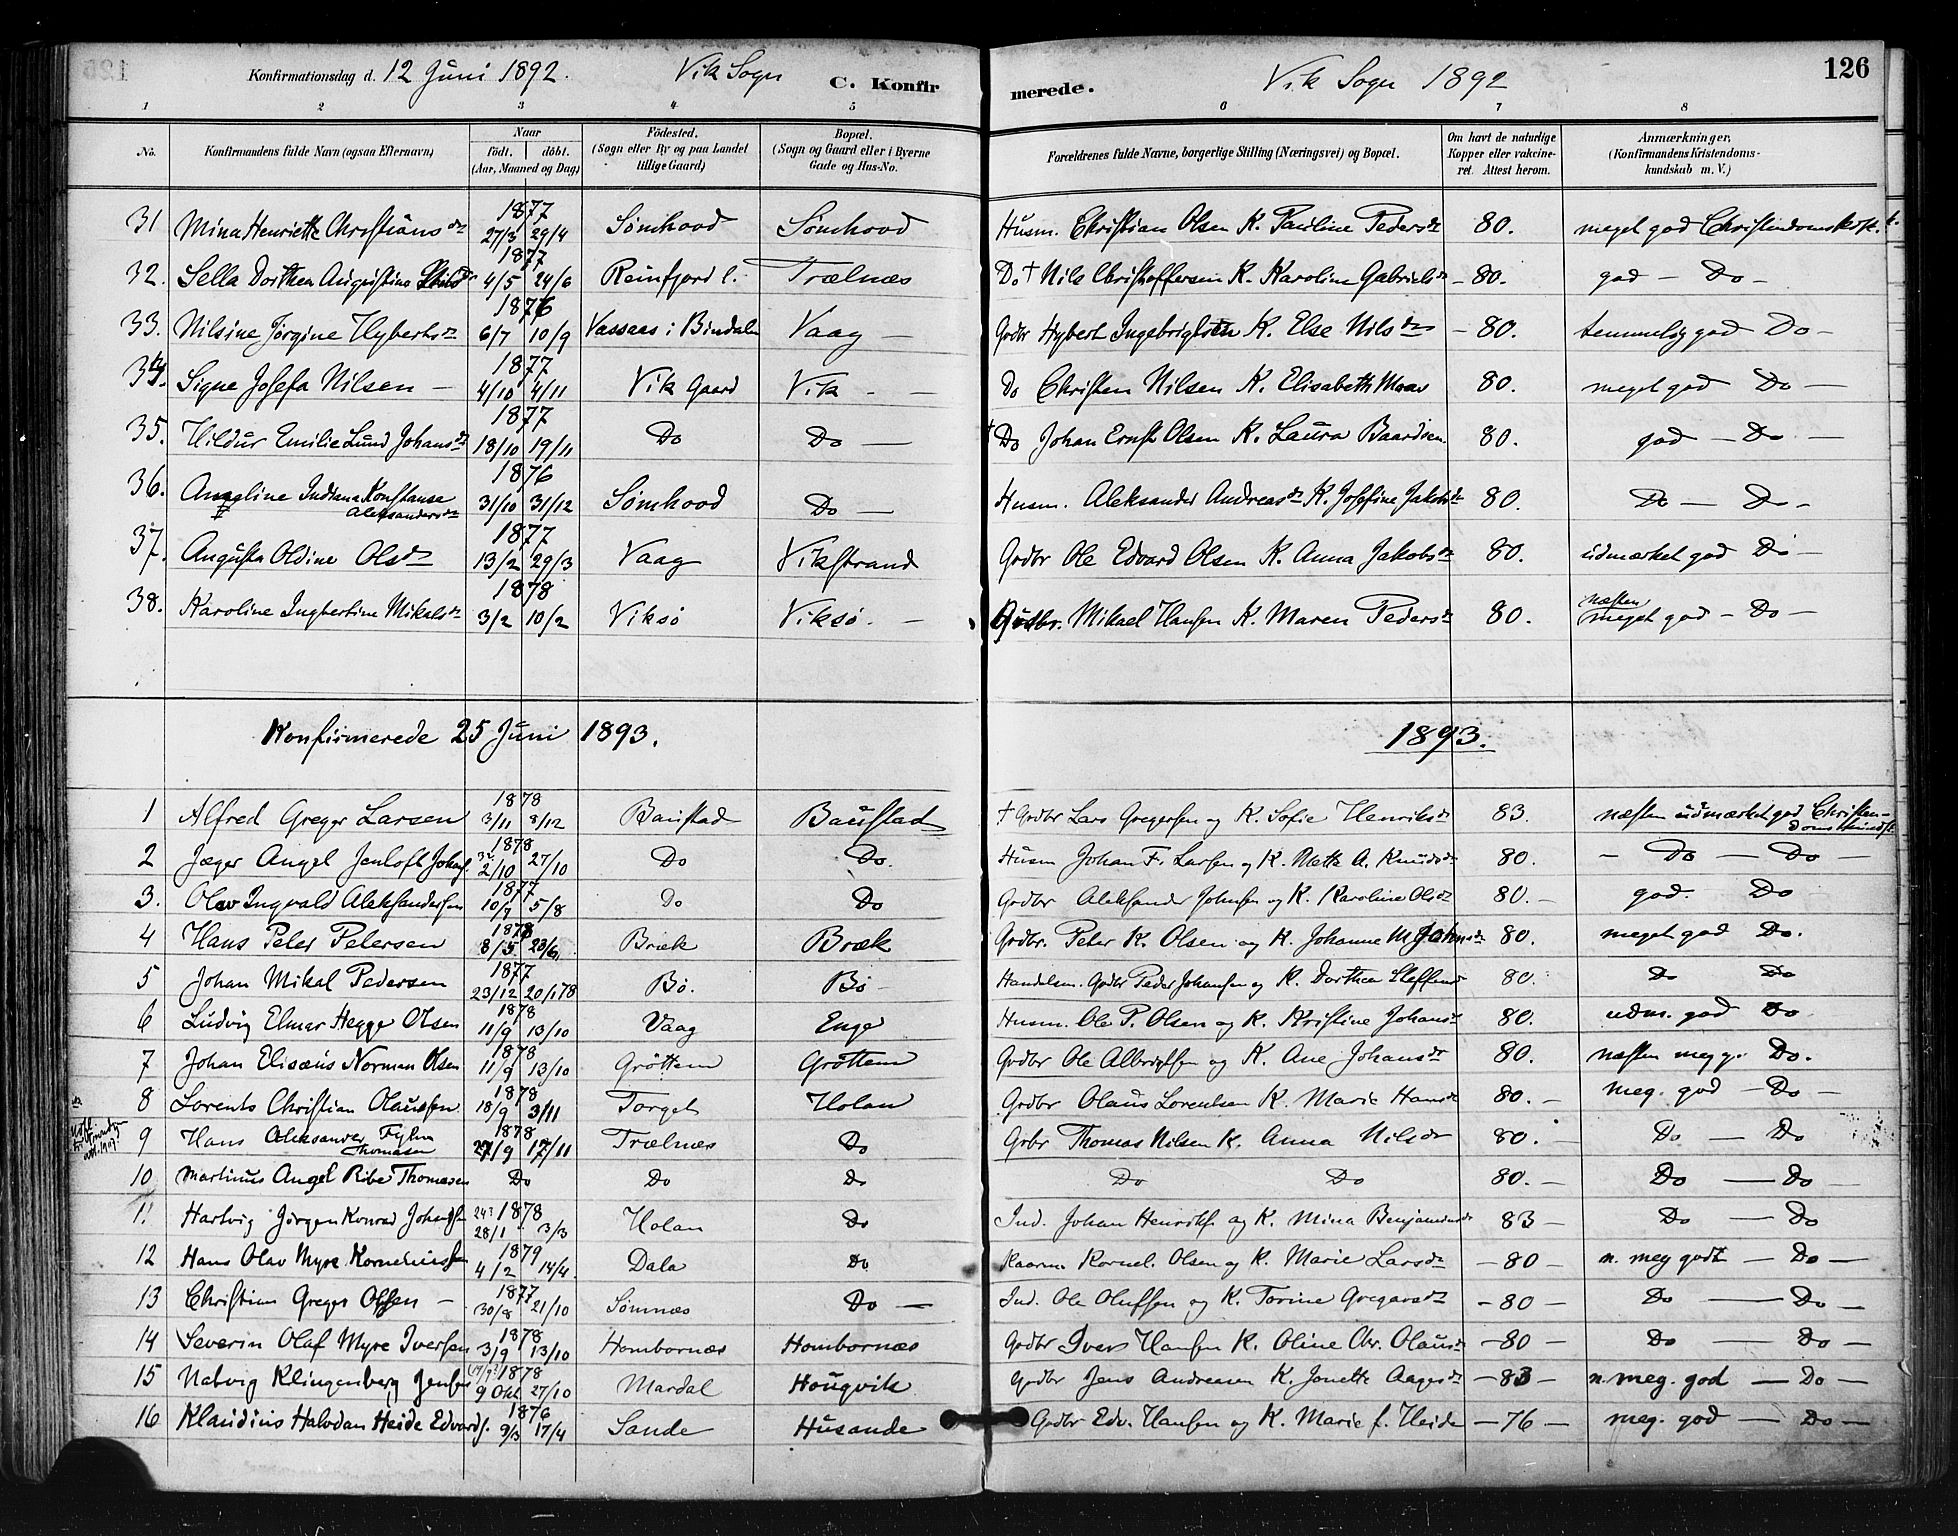 Konfirmationsdag d. 12 Juni 1892. Vik Sogn C. Konfirmerede. Vik Sogn 1892 126
1 2 3 4 5 6 7 8
No. Konfirmandens fulde Navn (ogsaa Efternavn) Naar födt. döbt. (Aar, Maaned og Dag) Födested. (Sogn eller By og paa Landet tillige Gaard) Bopæl. (Sogn og Gaard eller i Byerne Gade og Hus-No. Forældrenes fulde Navne, borgerlige Stilling (Næringsvei) og Bopæl. Om havt de naturlige Kopper eller vakcineret. Attest herom. Anmærkninger, (Konfirmandens Kristendomskundskab m. V.)
31 Mina Henriette Christians dtr 1877 27/3 29/4 Sømhovd Sømhovd Husm. Christian Olsen K. Pauline Pedersdtr 80. meget god Christendomskdsk.
32. Sella Dorthea Augustine 1877 4/5 24/6 Reinfjord Trælnæs Do † Nils Christoffersen K. Karoline Gabrielsdtr - 80. god - Do -
33. Nilsine Jørgine Hybertsdtr 1876 6/7 10/9 Vassaas i Bindalen Vaag - Grdbr Hybert Ingebrigtsen K. Else Nilsdtr - 80. temmelig god Do -
34. Signe Josefa Nilsen - 1877 4/10 4/11 Vik Gaard Vik - - Do Christen Nilsen K. Elisabeth 80. meget god Do -
35. Hildur Emilie Lund Johansdtr 1877 18/10 19/11 Do Do - † Do Johan Ernst Olsen K. Laura Baardsen 80. god - Do -
36. Angeline Indiana Konstanse Aleksandersdtr 1876 31/10 31/12 Sømhovd Do - Husm. Aleksander Andreas K. Josefine Jakobsdtr 80. Do - Do -
37. Augusta Oldine Olsdtr 1877 13/2 29/3 Vaag Vikstrand Grdbr Ole Edvard Olsen K. Anna Jakobsdtr 80. udmærket god Do -
38. Karoline Ingbertine Mikalsdtr 1878 3/2 10/2 Viksø Viksø. - Grdbr. Mikael Hansen K. Maren Pedersdtr 80. næsten meget god - Do -
Konfirmerede 25 Juni 1893. 1893.
1 Alfred Greger Larsen 1878 3/11 8/12 Baustad Baustad † Grdbr Lars Gregersen og K. Sofie Henriksdtr 83. næsten udmærket god Christendomskundsk.
2 Jæger Angel Jenloft Johs. 1878 2/10 27/10 Do Do. Husm Johan F. Larsen og K. Mette A. Knudsdtr 80. - Do - Do -
3. Olav Ingvald Aleksandersen 1877 10/7 5/8 Do Do Grdbr Aleksander Johnsen og K. Karoline Olsdtr 80. - god. Do
4 Hans Peter Petersen 1878 8/5 23/6. Bræk Bræk Grdbr. Peter K. Olsen og K. Johanne M Johnsdtr 80. meget god Do.
5 Johan Mikal Pedersen 1877 23/12 20/1 78 Bö. Bö - Handelsm. Grdbr Peder Johansen og K. Dorthea Steffensd 80. Do Do
6 Ludvig Elmar Hegge Olsen 1878 11/9 13/10 Vaag Enge Husm. Ole P. Olsen og K. Kristine Johansdtr 80. udm. god Do
7 Johan Elisæus Norman Olsen 1878 11/9 13/10 Gröttem Gröttem Grdbr Ole Albrigtsen og K. Ane Johansdtr 80. næsten meg g. Do.
8 Lorents Christian Olaussen 1878 18/9 3/11 Torget Holan Grdbr Olaus Lorentsen K. Marie Hansdtr 80. - meg. god - Do -
9 Hans Aleksander Thomasen 1878 27/9 17/11 Trælnæs Do Grbr Thomas Nilsen K. Anna Nilsdtr 80. - Do - Do
10 Martinus Angel Ribe Thomasen Do Do Do Do Do 80. - Do - Do -
11 Hartvig Jörgen Konrad Johansen 24? 1878 28/1 3/3 Holan Do Ind. Johan Henriks. og K. Mina Benjaminsdtr - 83 - Do - Do
12 Hans Olav Myre Korneliussen 1879 4/2 14/4. Dala Do Kaarm Kornel. Olsen og K. Marie Larsdtr - 80 - n. meg godt - Do -
13 Christian Greger Olsen - 1877 30/8 21/10 Sømnæs Do - Ind. Ole Olufsen og K. Torine Gregersdtr - 80 - Do - Do -
14 Severin Olaf Myre Iversen 1878 3/9 13/10 Hombornæs Hombornæs Grdbr Iver Hansen K. Oline Chr. Olausdtr - 80 Do - Do -
15 Natvig Klingenberg Jensen 1878 9 Okt. 27/10 Mardal Hougvik Grdbr Jens Andreasen K. Jonette Aagesdtr - 83 - n. meg. god - Do -
16 Klaudius Halvdan Heide Edvards. 1876 9/3 17/4 Sande Husande Grdbr Edv. Hansen og K. Marie f. Heide - 76 - meg. god - Do -